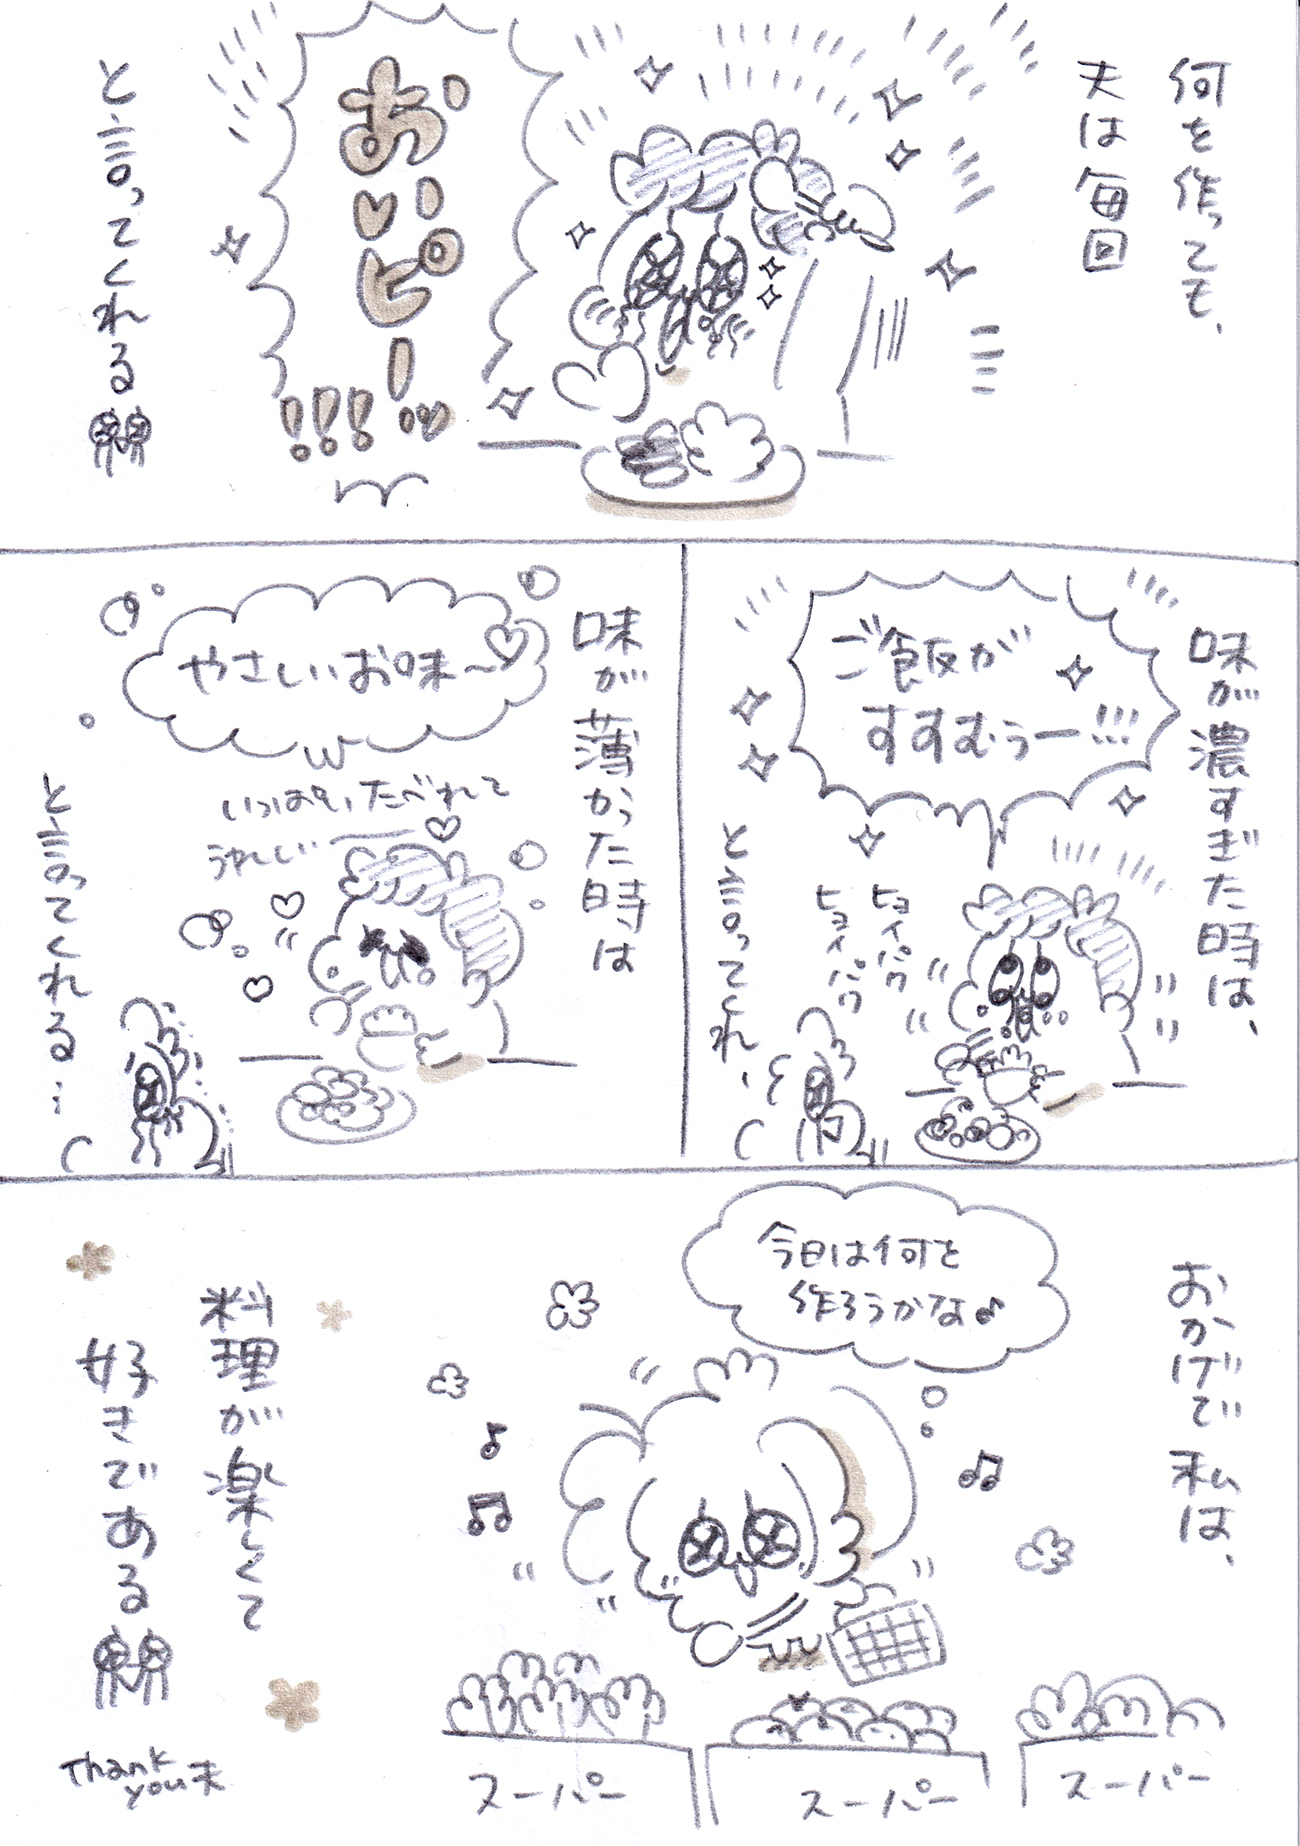 何を作っても、
夫は毎回
おいピー!!!!
と言ってくれる
味が濃すぎた時は、
ご飯が
すすむぅー!!!
ヒョイ パク
ヒョイ パク
と言ってくれ、
味が薄かった時は
やさしいお味~♡
いっぱいたべれて
うれしい
と言ってくれる…
おかげで私は、
今日は何を
作ろうかな♪
料理が楽しくて
好きである
スーパー
スーパー
スーパー
Thank
you夫